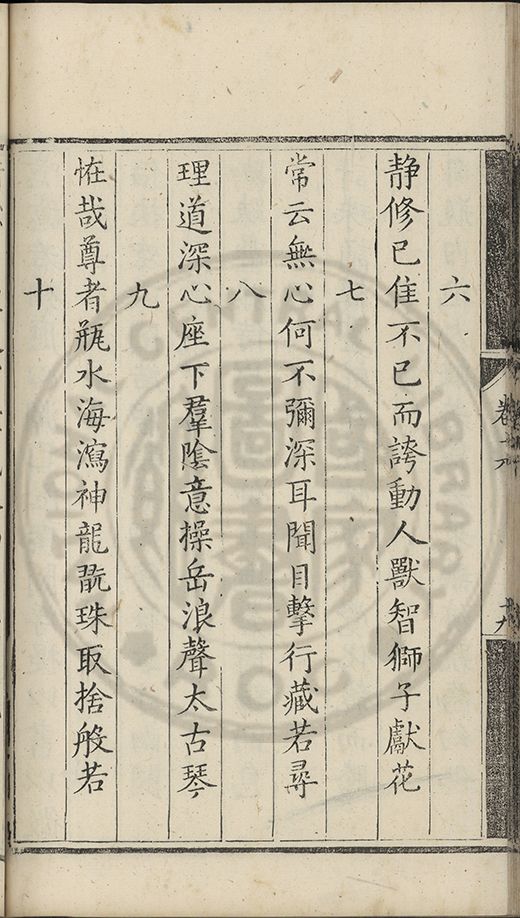 六
静修已隹不已而誇動人獸智獅子獻花
七
常云無心何不彌深耳聞目擊行藏若尋
八
理道深心座下羣陰意操岳浪聲太古琴
九
恠哉尊者瓶水海瀉神龍翫珠取捨般若
十